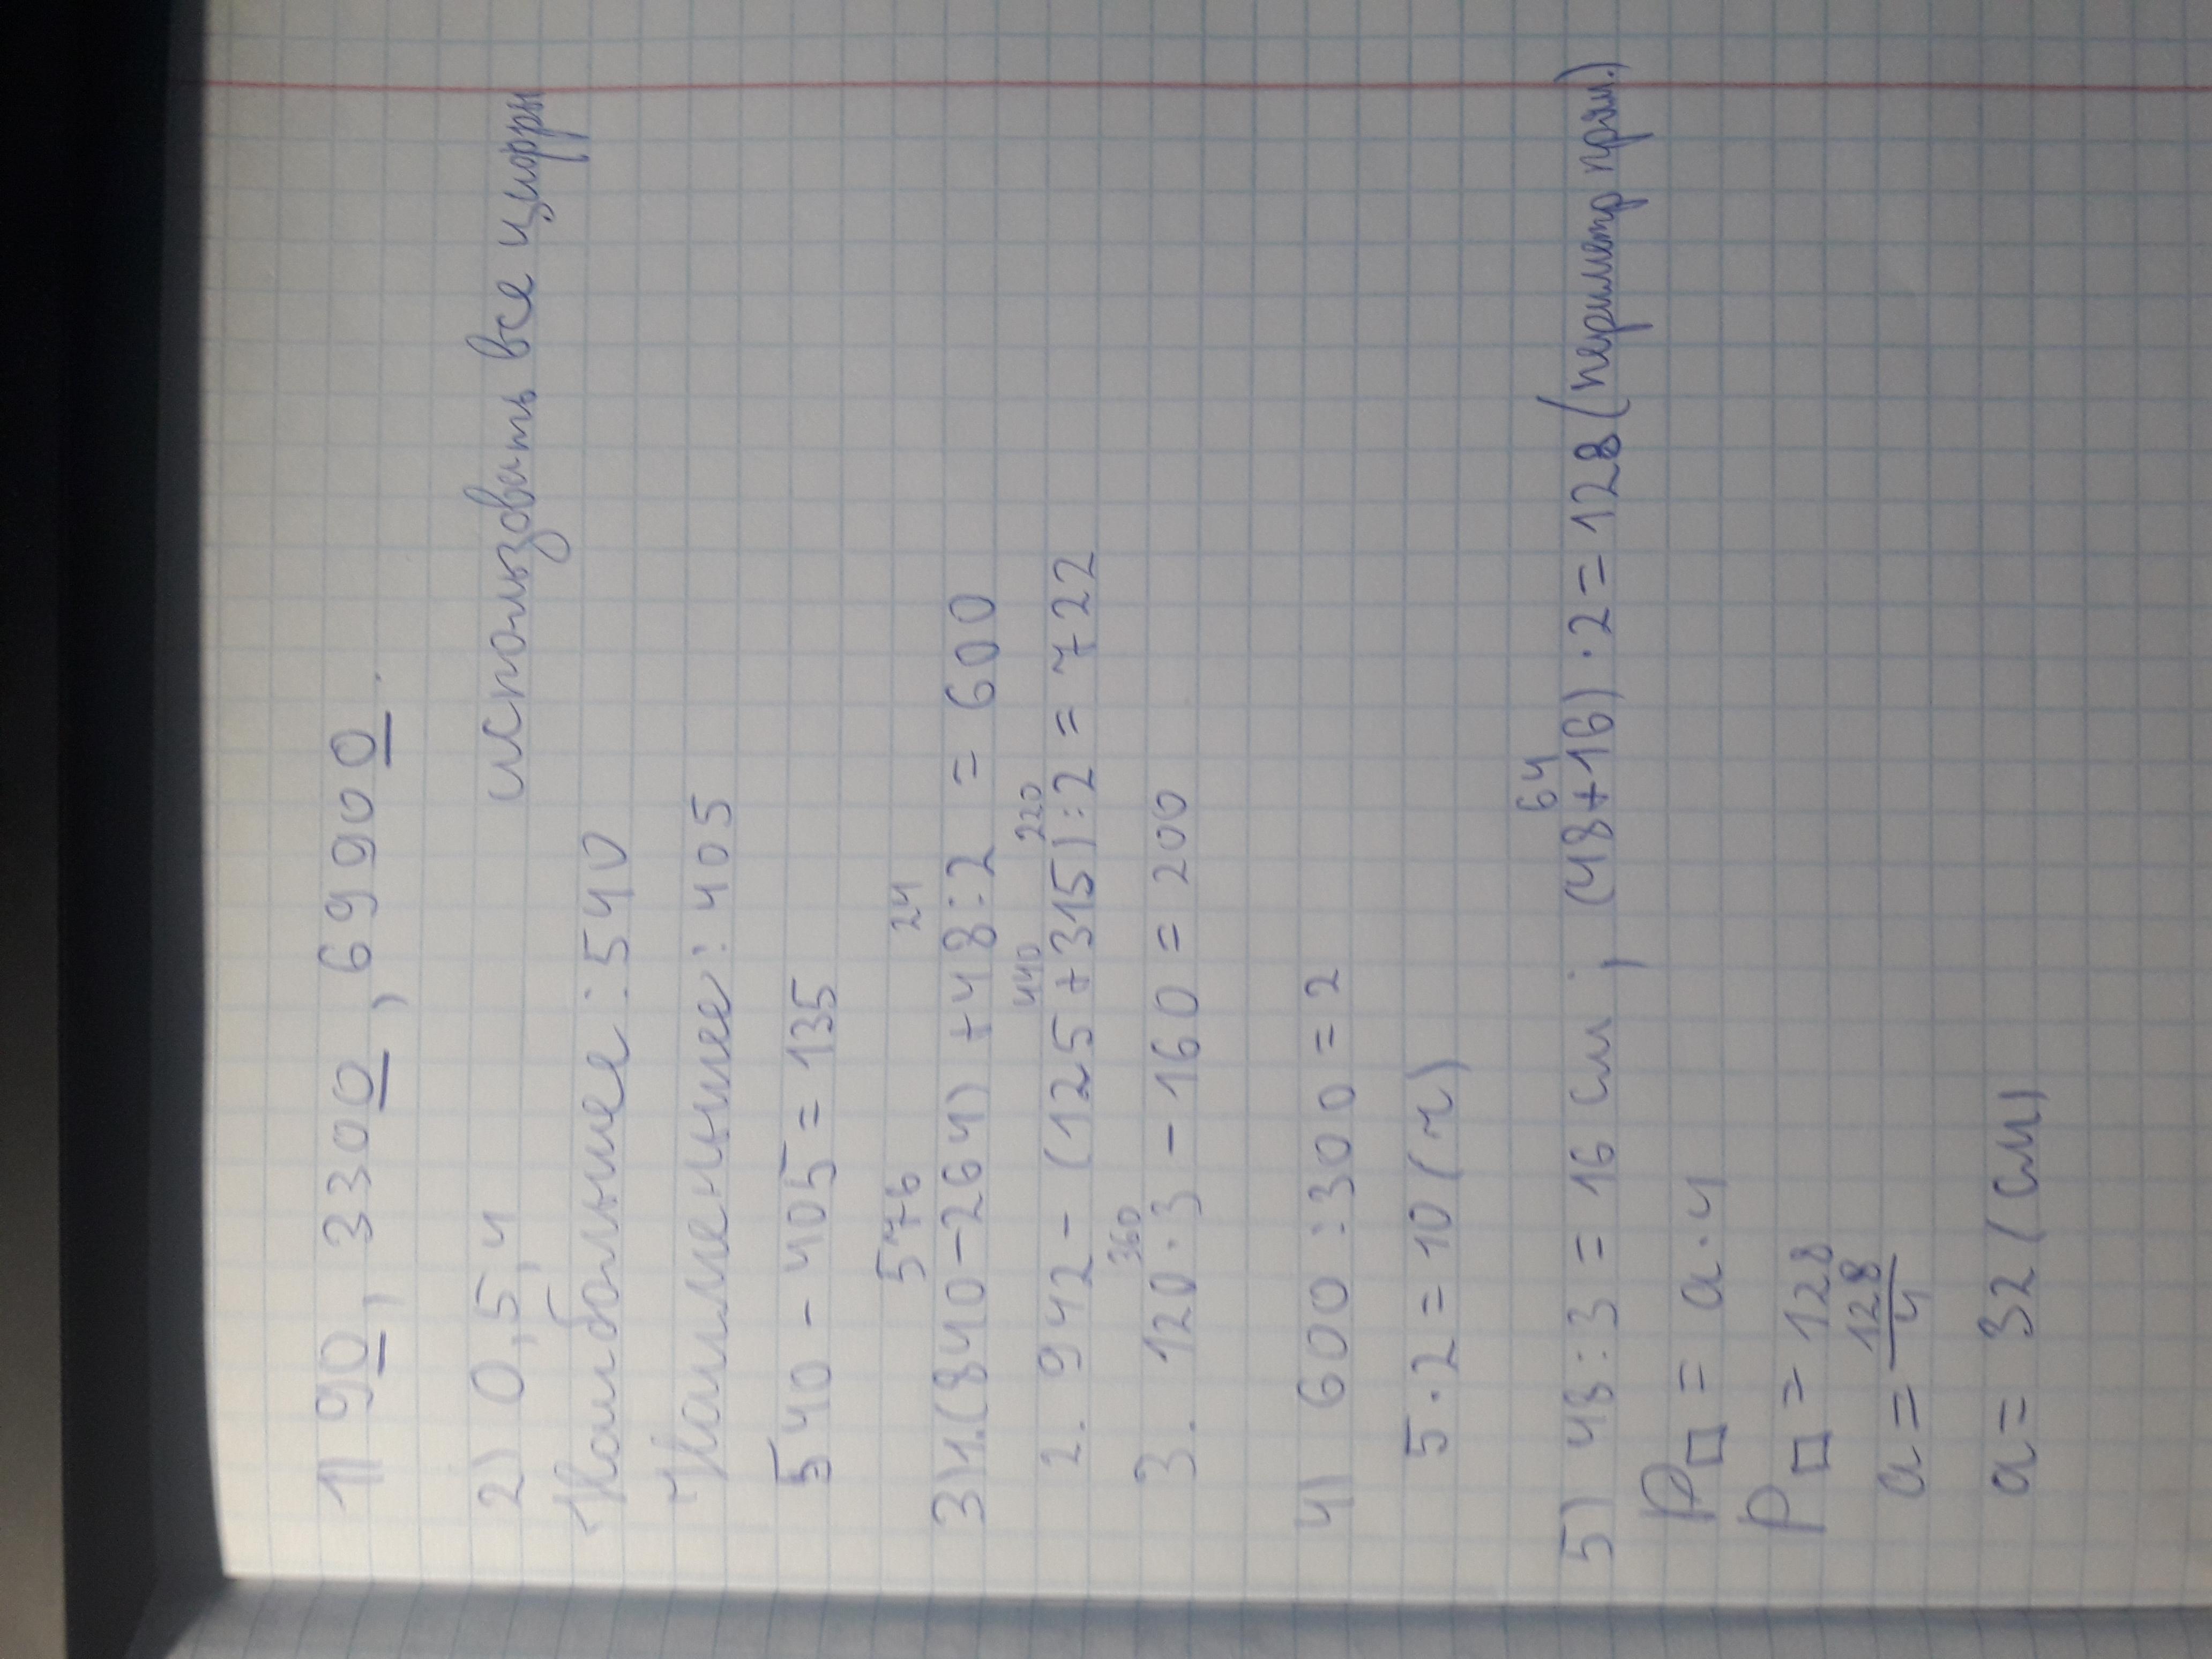 1) 90, 3300, 69900.
2) 0,5,4 использовать все цифры
Наибольшее: 540
Наименьшее: 405
540 - 405 = 135
576 24
3) 1. (840-264) +48:2 = 600
440 220
2. 942 - (125+315):2 = 722
360
3. 120·3 - 160 = 200
4) 600 : 300 = 2
5·2 = 10 (ч)
64
5) 48:3 = 16 см ; (48+16)·2=128 (периметр прям.)
P□ = a·4
P□ = 128
a = 128/4
a = 32 (см)